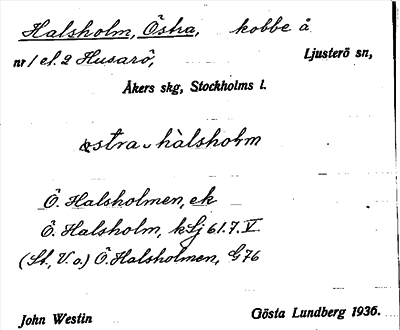 Halsholm, Östra, kobbe å
nr 1 el. 2 Husarö, Ljusterö sn,
Åkers skg, Stockholms l.
östra hàlsholm
Ö. Halsholmen, ek
Ö. Halsholm, k Lj 61.7.V.
(St., V. o.) Ö. Halsholmen, G 76
John Westin Gösta Lundberg 1936.